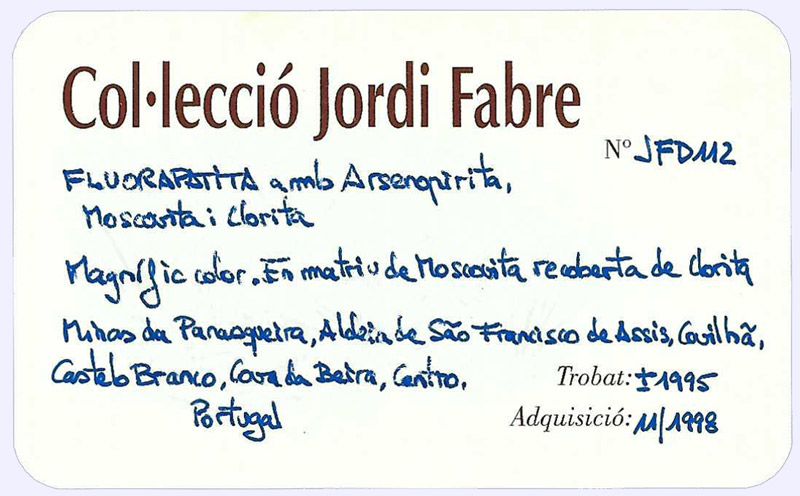 Col·lecció Jordi Fabre
Nº JFD112
FLUORAPATITA amb Arsenopirita,
Moscovita i Clorita
Magnífic color. En matriu de Moscovita recoberta de Clorita
Minas da Panasqueira, Aldeia de São Francisco de Assis, Covilhã,
Castelo Branco, Cova da Beira, Centro,
Trobat: ±1995
Portugal
Adquisició: 11/1998